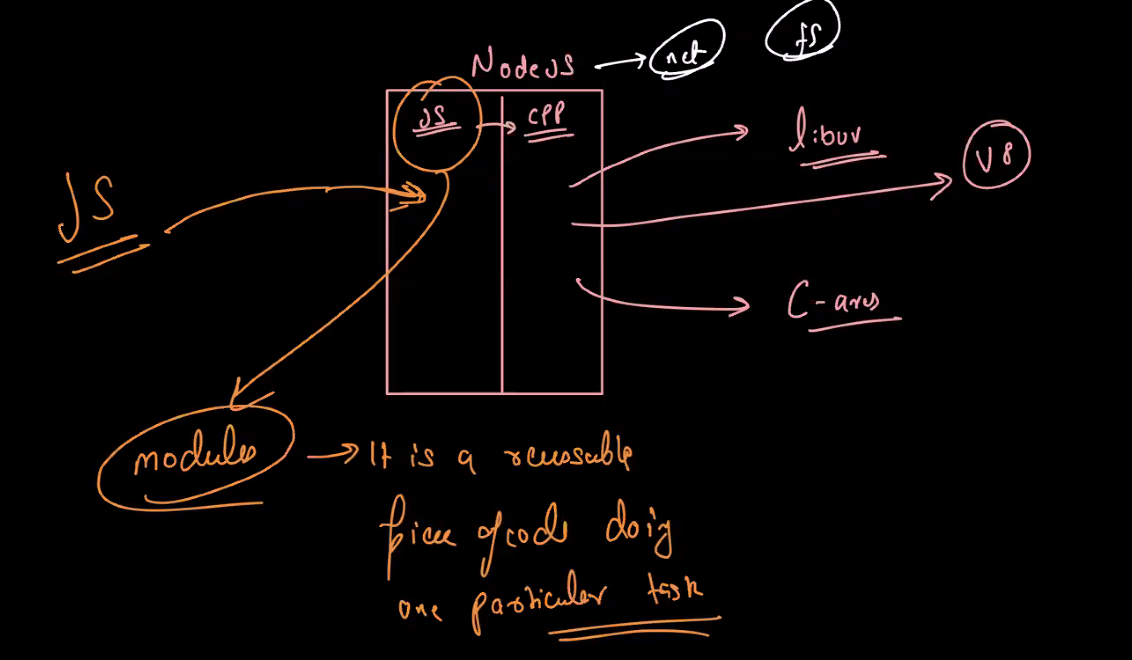 NodeJS → net fs
JS → CPP
libuv
V8
JS
C-ares
modules → It is a reusable
piece of code doing
one particular task